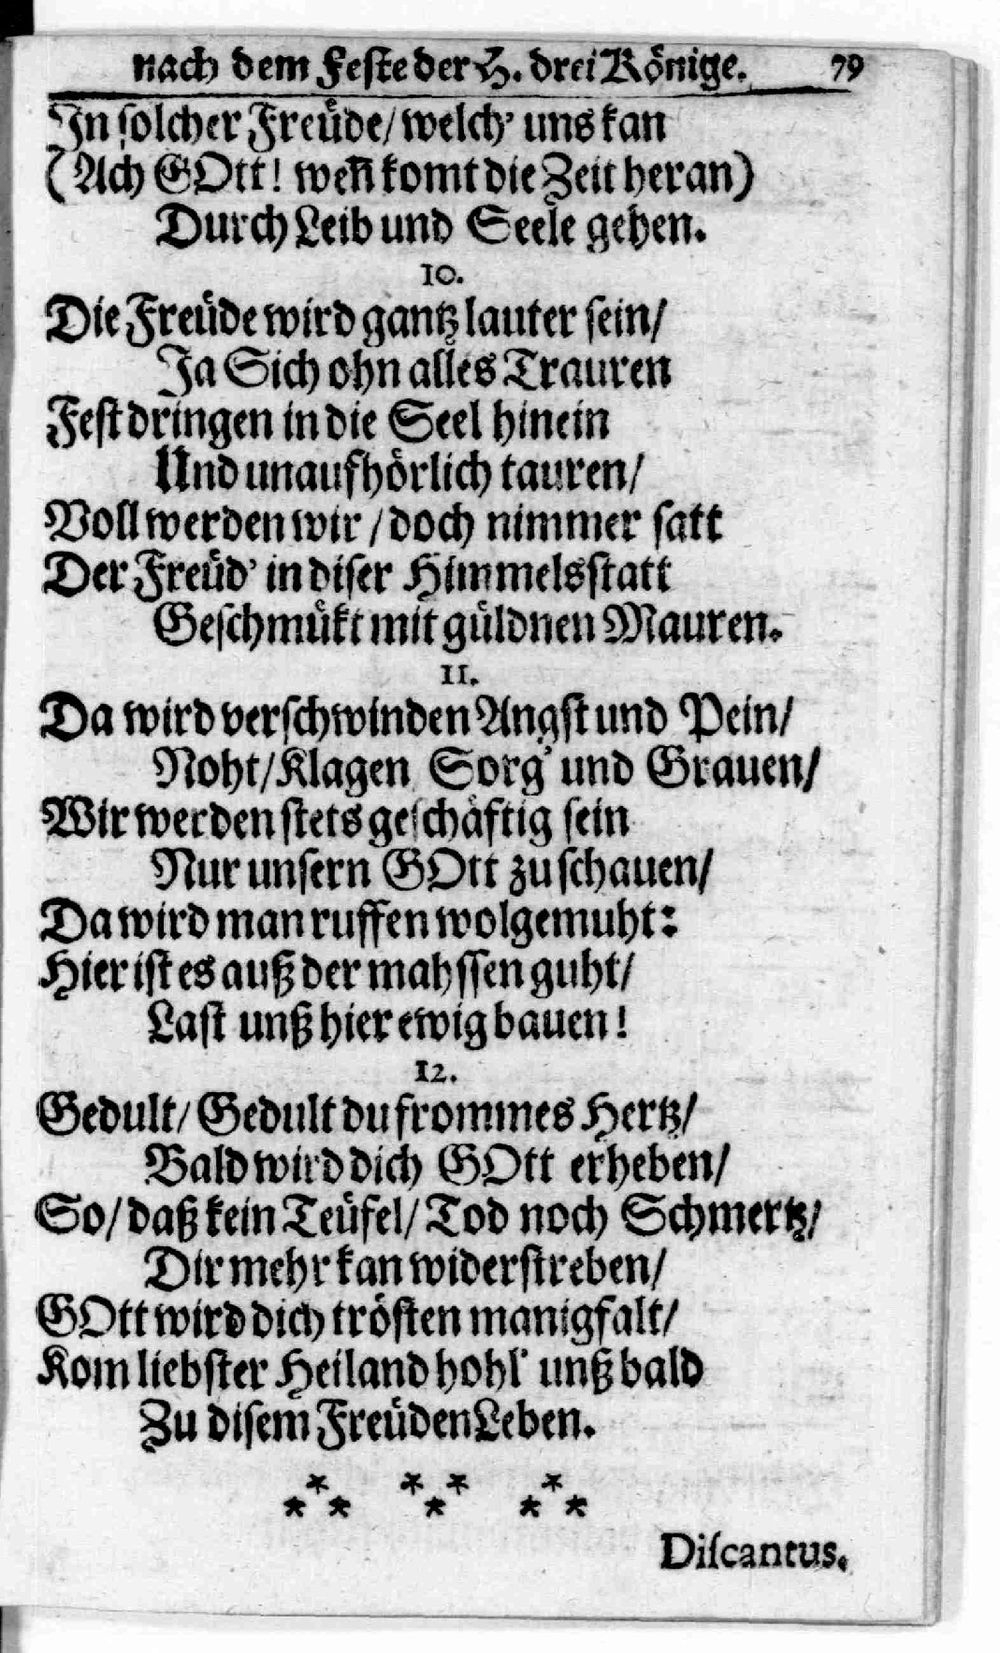 nach dem Feste der H. drei Könige. 79
In solcher Freüde/ welch' uns kan
(Ach GOtt! weñ komt die Zeit heran)
Durch Leib und Seele gehen.
10.
Die Freüde wird gantz lauter sein/
Ja Sich ohn alles Trauren
Fest dringen in die Seel hinein
Und unaufhörlich tauren/
Voll werden wir / doch nimmer satt
Der Freüd' in diser Himmelsstatt
Geschmükt mit güldnen Mauren.
11.
Da wird verschwinden Angst und Pein/
Noht/ Klagen Sorg' und Grauen/
Wir werden stets geschäftig sein
Nur unsern GOtt zu schauen/
Da wird man ruffen wolgemuht:
Hier ist es auß der mahssen guht/
Last unß hier ewig bauen!
12.
Gedult/ Gedult du frommes Hertz/
Bald wird dich GOtt erheben/
So/ daß kein Teüfel/ Tod noch Schmertz/
Dir mehr kan widerstreben/
GOtt wird dich trösten manigfalt/
Kom liebster Heiland hohl' unß bald
Zu disem Freüden Leben.
Discantus.